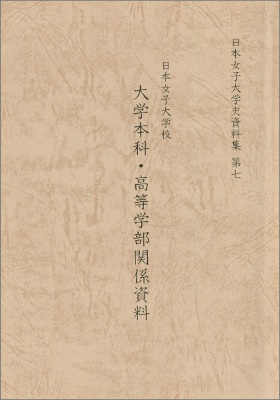 日本女子大学史資料集 第七
日本女子大学校
大学本科・高等学部関係資料